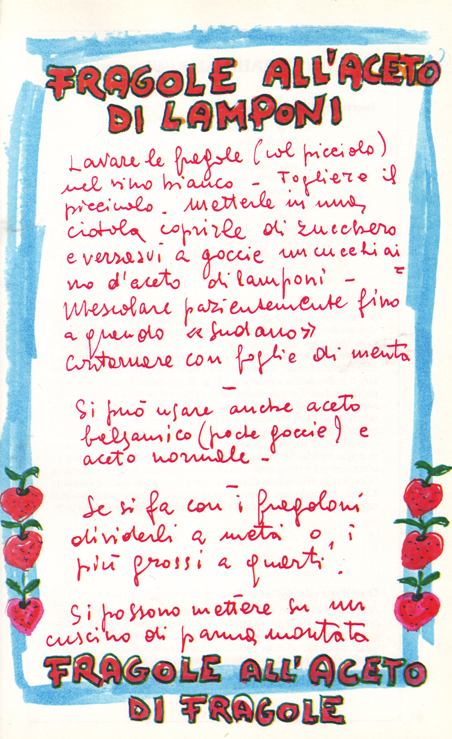 FRAGOLE ALL'ACETO
DI LAMPONI
Lavare le fragole (col picciolo)
nel vino bianco - Togliere il
picciuolo. Metterle in una
ciotola coprirle di zucchero
e versarvi a goccie un cucchiai=
no d'aceto di lamponi -
Mescolare pazientemente fino
a quando «sudano»
Contornare con foglie di menta
-
Si può usare anche aceto
balsamico (poche goccie) e
aceto normale -
-
Se si fa con i fragoloni
dividerli a metà o, i
più grossi a quarti.
Si possono mettere su un
cuscino di panna montata
FRAGOLE ALL'ACETO
DI FRAGOLE